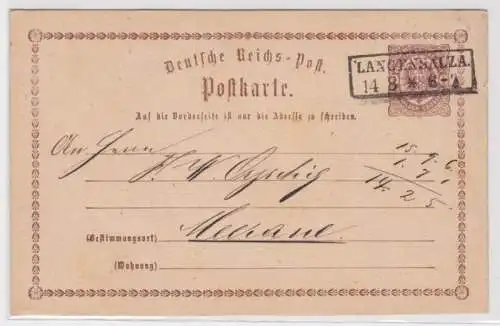 Deutsche Reichs-Post.
Postkarte.
LANGENSALZA.
14 8 * 6-7
Auf die Vorderseite ist nur die Adresse zu schreiben.
An Herrn
15. 9. 6.
1. 7. 1
14. 2 5.
Meerane.
(Bestimmungsort)
(Wohnung)